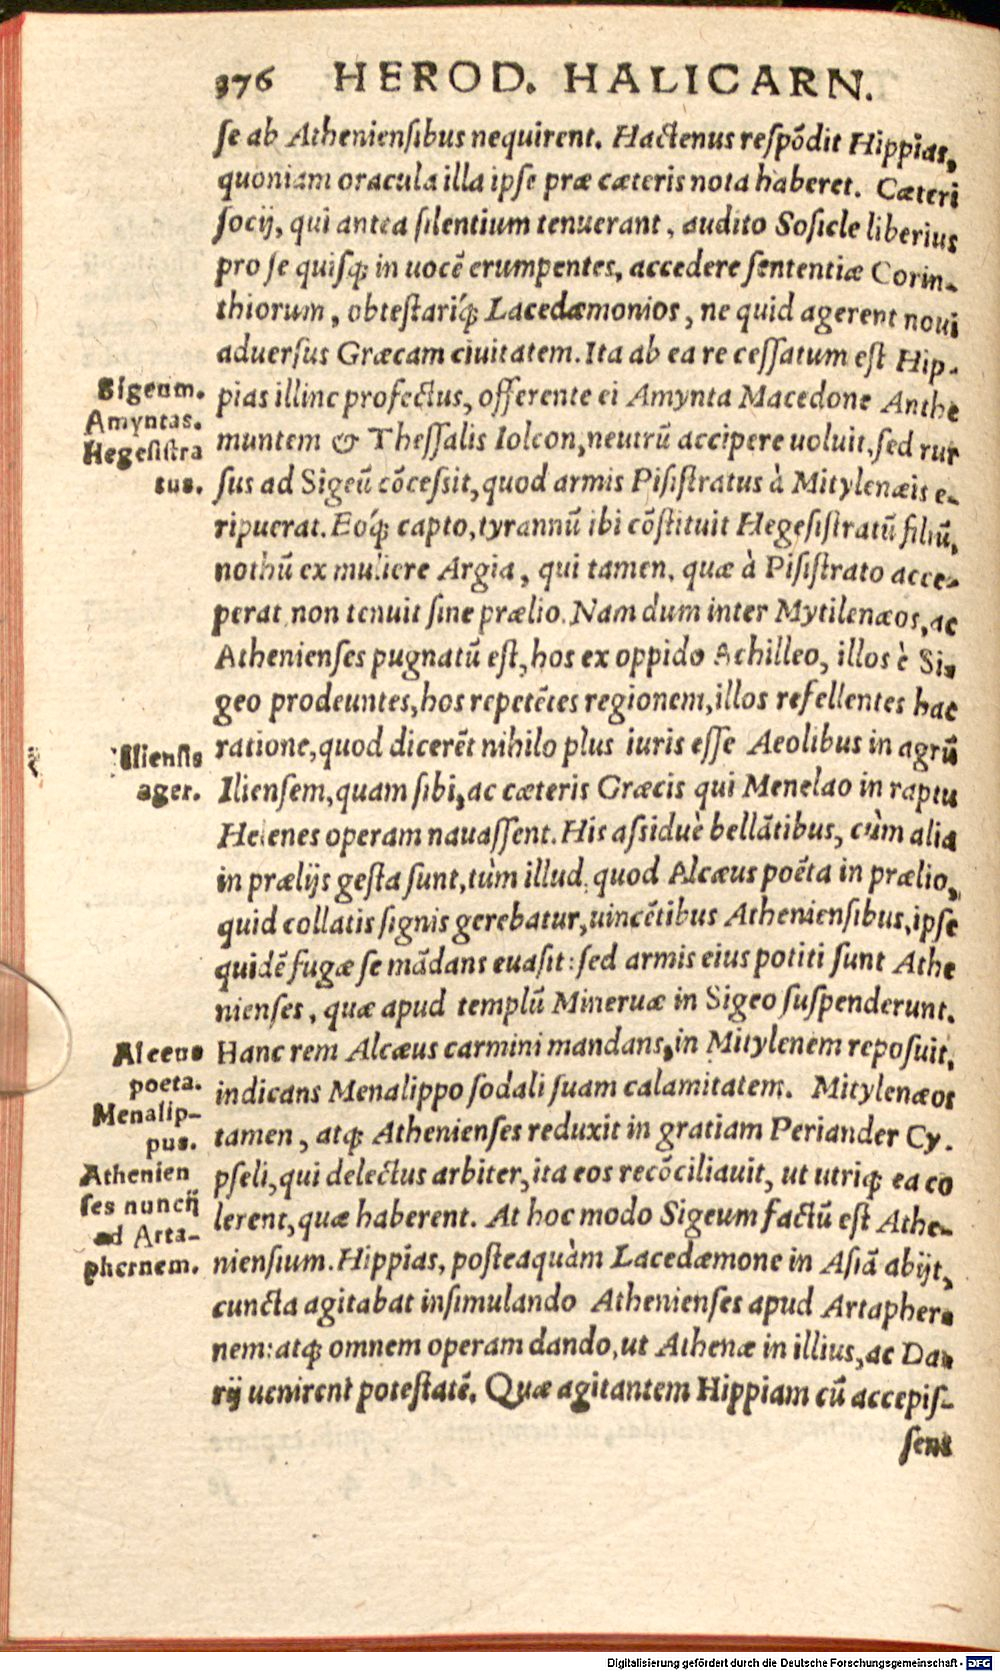 376 HEROD. HALICARN.
se ab Atheniensibus nequirent. Hactenus respõdit Hippias,
quoniam oracula illa ipse præ cæteris nota haberet. Cæteri
socij, qui antea silentium tenuerant, audito Sosicle liberius
pro se quisq; in uocẽ erumpentes, accedere sententiæ Corin-
thiorum, obtestariq́; Lacedæmonios, ne quid agerent noui
aduersus Græcam ciuitatem. Ita ab ea re cessatum est Hip-
Sigeum.
Amyntas.
Hegesistra
tus.
pias illinc profectus, offerente ei Amynta Macedone Anthe
muntem & Thessalis Iolcon, neutrũ accipere uoluit, sed rur
sus ad Sigeũ cõcessit, quod armis Pisistratus à Mitylenæis e-
ripuerat. Eoq́; capto, tyrannũ ibi cõstituit Hegesistratũ filiũ,
nothũ ex muliere Argia, qui tamen, quæ à Pisistrato acce-
perat non tenuit sine prælio. Nam dum inter Mytilenæos, ac
Athenienses pugnatũ est, hos ex oppido Achilleo, illos è Si-
geo prodeuntes, hos repetẽtes regionem, illos refellentes hac
Iliensis
ager.
ratione, quod dicerẽt nihilo plus iuris esse Aeolibus in agrũ
Iliensem, quam sibi, ac cæteris Græcis qui Menelao in raptu
Helenes operam nauassent. His assiduè bellãtibus, cùm alia
in prælijs gesta sunt, tùm illud, quod Alcæus poẽta in prælio,
quid collatis signis gerebatur, uincẽtibus Atheniensibus, ipse
quidẽ fugæ se mãdans euasit: sed armis eius potiti sunt Athe
nienses, quæ apud templũ Mineruæ in Sigeo suspenderunt.
Alceus
poeta.
Menalip-
pus.
Athenien
ses nuncij
ad Arta-
phernem.
Hanc rem Alcæus carmini mandans, in Mitylenem reposuit,
indicans Menalippo sodali suam calamitatem. Mitylenæos
tamen, atq; Athenienses reduxit in gratiam Periander Cy-
pseli, qui delectus arbiter, ita eos recõciliauit, ut utriq; ea co
lerent, quæ haberent. At hoc modo Sigeum factũ est Athe-
niensium. Hippias, posteaquàm Lacedæmone in Asiã abijt,
cuncta agitabat insimulando Athenienses apud Artapher-
nem: atq; omnem operam dando, ut Athenæ in illius, ac Da-
rij uenirent potestatẽ. Quæ agitantem Hippiam cũ accepis-
sent
Digitalisierung gefördert durch die Deutsche Forschungsgemeinschaft - DFG